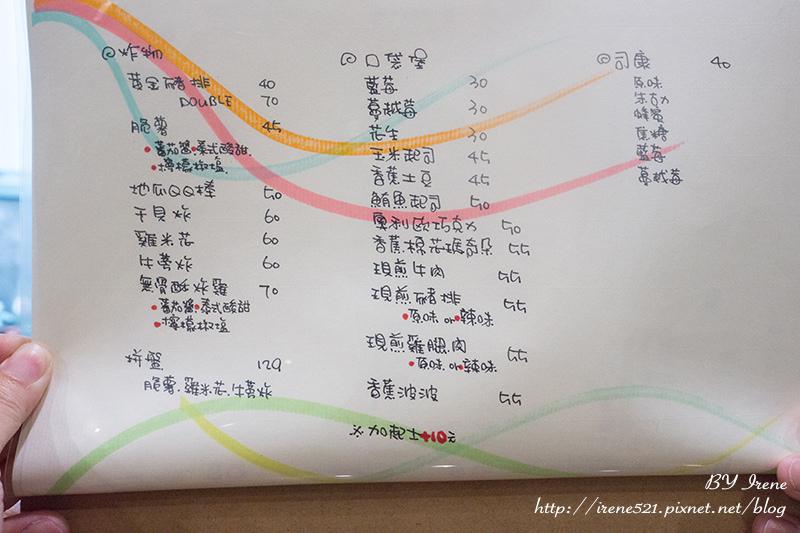 ◎炸物
黃金豬排 40
DOUBLE 70
脆薯 45
•蕃茄醬•泰式酸甜
•檸檬椒塩
地瓜QQ棒 50
干貝炸 60
雞米花 60
牛蒡炸 60
無骨酥炸雞 70
•蕃茄醬•泰式酸甜
•檸檬椒塩
拼盤 129
脆薯.雞米花.牛蒡炸
◎口袋堡
藍莓 30
蔓越莓 30
花生 30
玉米起司 45
香蕉土豆 45
鮪魚起司 50
奧利歐巧克力 50
香蕉棉花瑪奇朵 55
現煎牛肉 55
現煎豬排 55
•原味 or•辣味
現煎雞腿肉 55
•原味 or•辣味
香蕉波波 55
※加起士+10元
◎司康 40
原味
朱克力
蜂蜜
焦糖
藍莓
蔓越莓
BY Irene
http://irene521.pixnet.net/blog